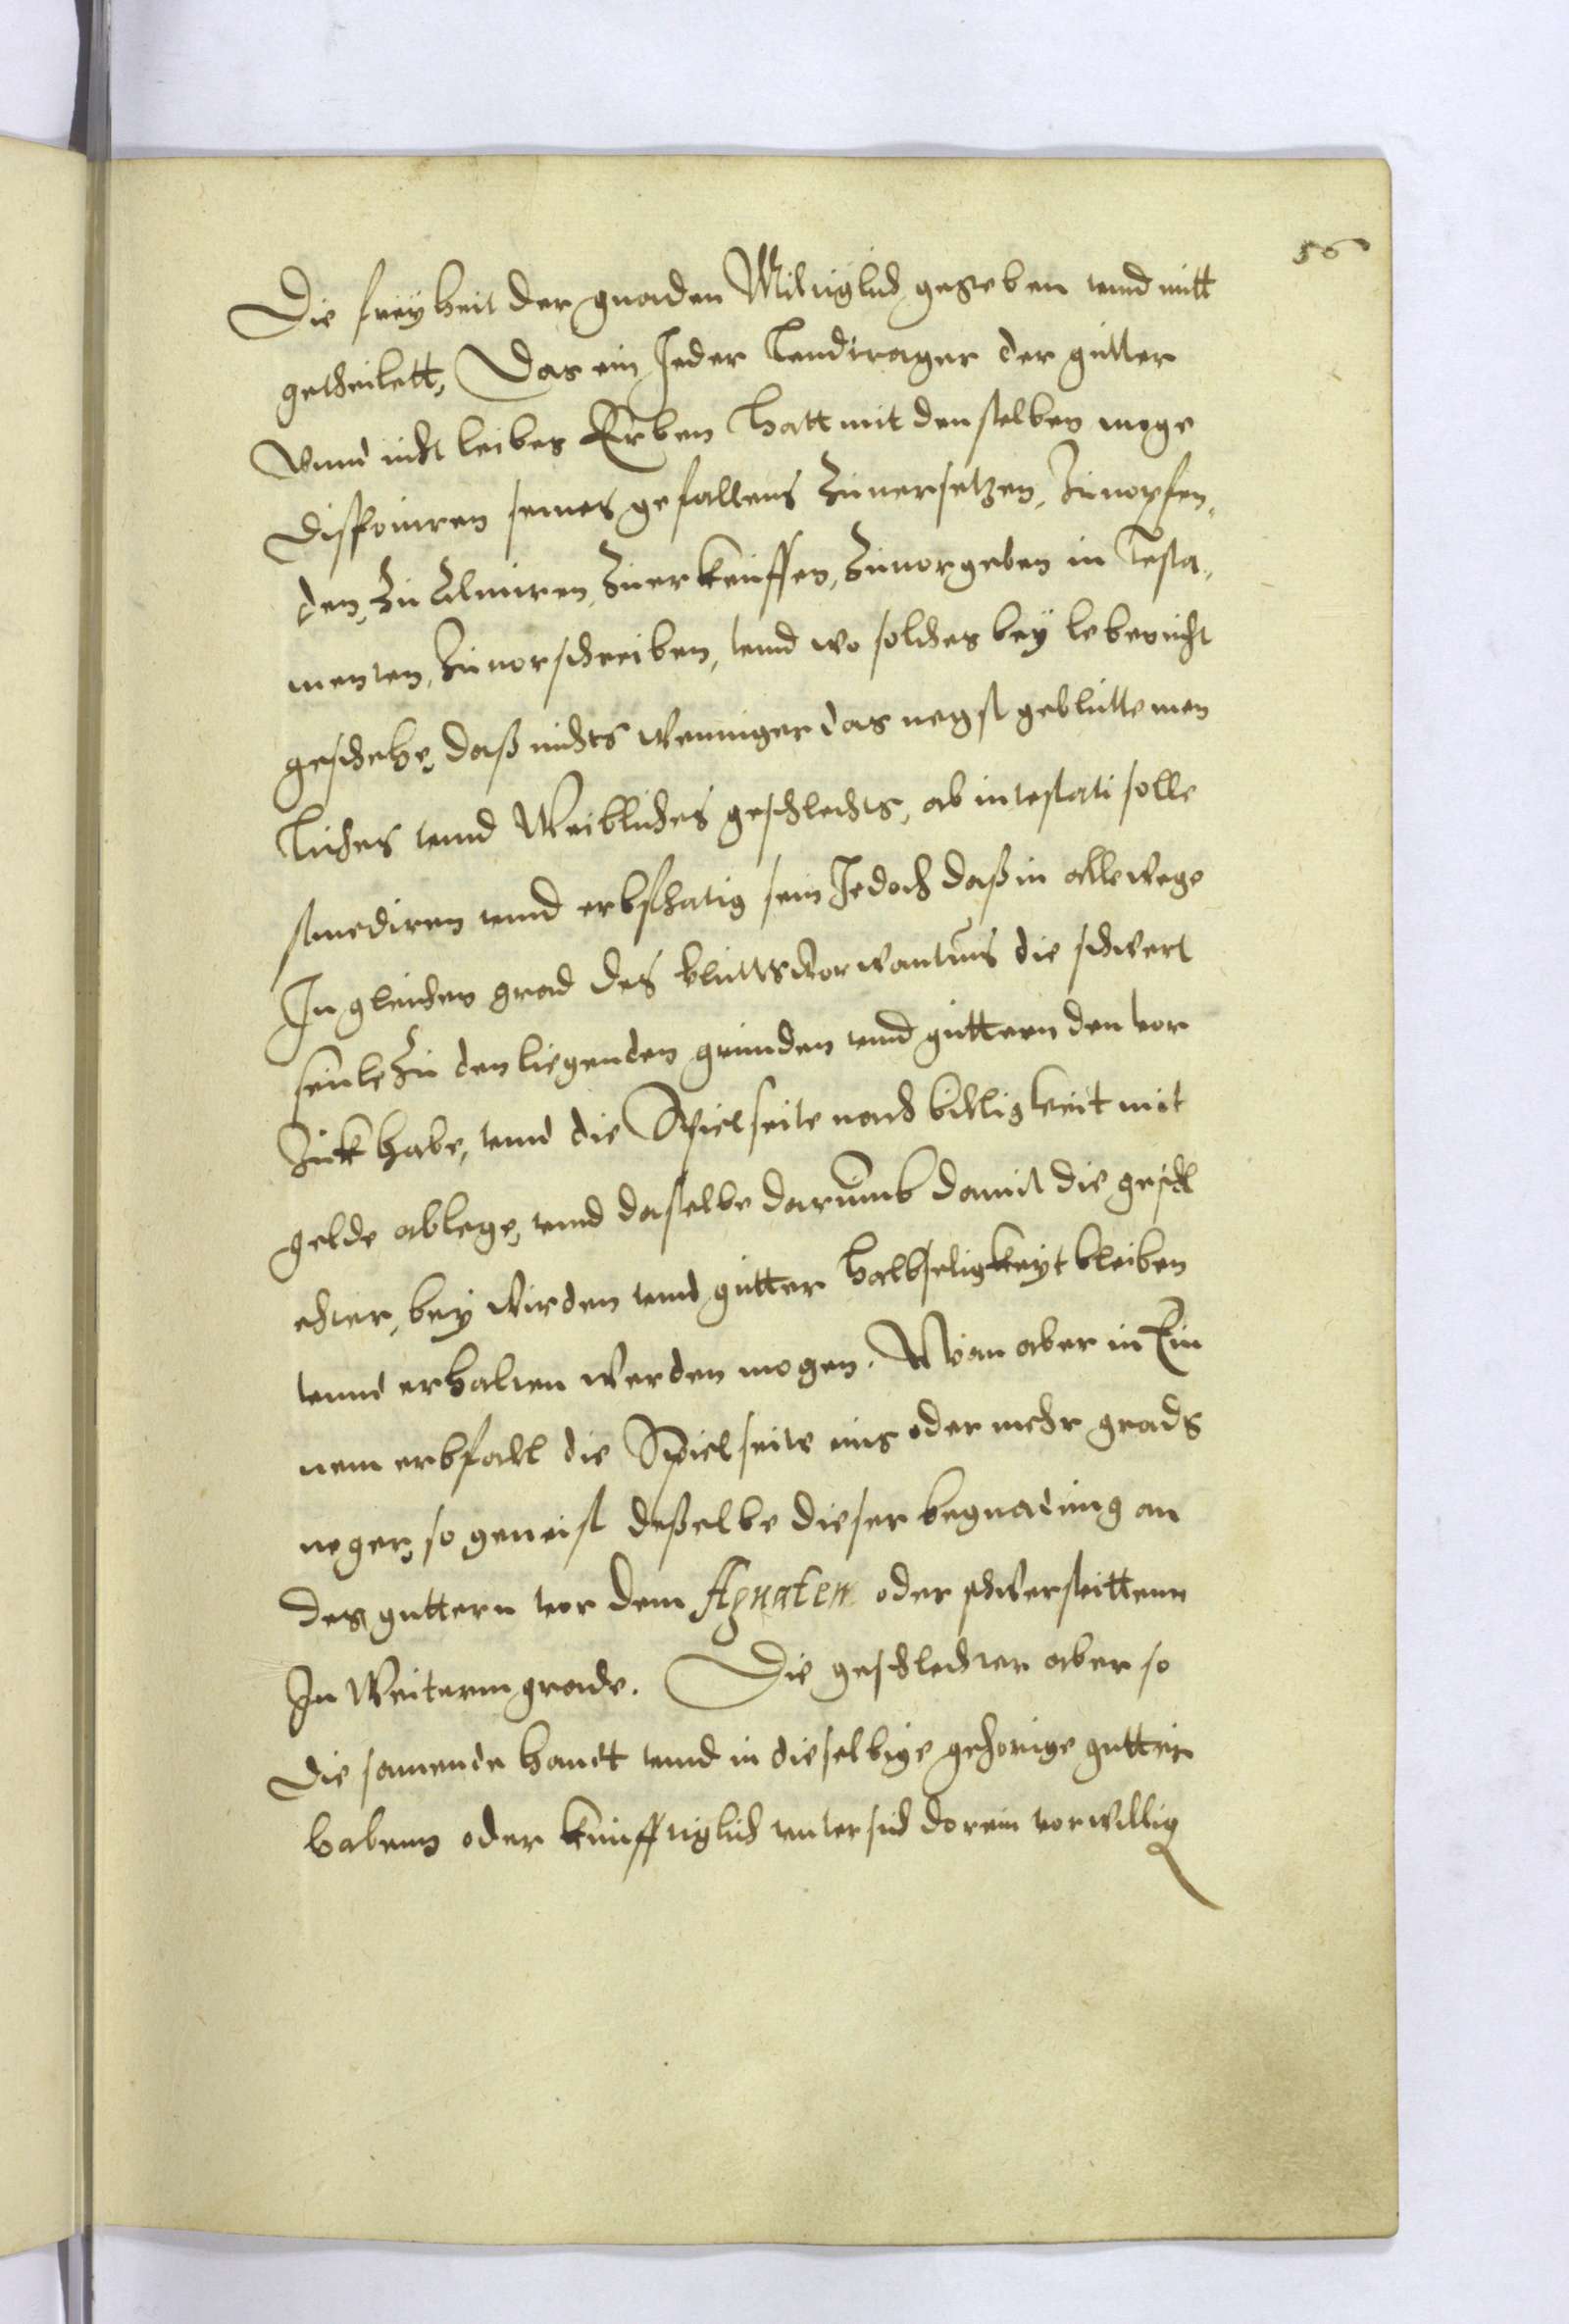 56
Die freyheit der gnaden Miltiglich gegeben vnnd mitt
getheilett, Das ein Jeder Lendtrager der gutter
Vnnd nicht leibes Erben hatt mit denselben moge
disponiren seines gefallens Zuuersetzen, Zuuorpfen,
den, Zu Alieniren, Zuerkeuffen, Zuuorgeben in Testa,
menten, Zuuorschreiben, vnnd wo solches bey leben nicht
geschehe, daß nichts weniger das negst geblutte men
liches vnnd Weibliches geschlechts, ab intestati solle
succediren vnnd erbschatig sein Jedoch daß in allewege
In gleichen grad des blutts Vorwantnus die schwert
seite Zu den liegenden grunden vnnd guttern den vor
Zuck habe, vnnd die Spiel seite nach billigkeit mit
gelde ablege, vnnd dasselbe darumb damit die geschl
echter, bey wirden vnnd gutter halbseligkeyt bleiben
vnnd erhalten werden mogen. Wan aber in Ein
nem erbfall die Spielseite eins oder mehr grads
neger, so geneist deßelbe dieser begnadung an
den guttern vor dem Agnaten oder schwerseittenn
In Weiterm grade. Die geschlechter aber so
die samende handt vnnd in dieselbige gehorige gutter
habenn oder kunfftiglich vnter sich darein vorwillig